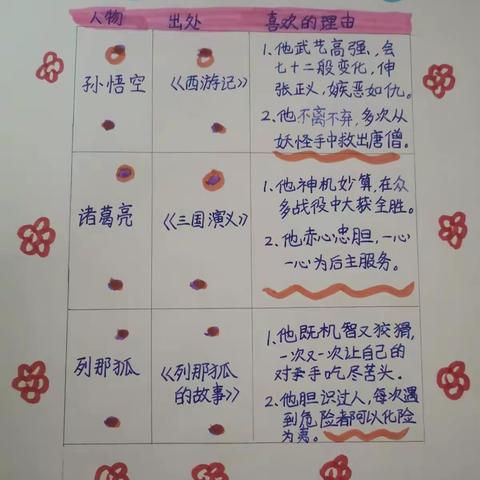 人物 出处 喜欢的理由
孙悟空
《西游记》
1.他武艺高强,会
七十二般变化,伸
张正义,嫉恶如仇。
2.他不离不弃,多次从
妖怪手中救出唐僧。
诸葛亮
《三国演义》
1.他神机妙算,在众
多战役中大获全胜。
2.他赤心忠胆,一心
一心为后主服务。
列那狐
《列那狐
的故事》
1.他既机智又狡猾,
一次又一次让自己的
对手吃尽苦头。
2.他胆识过人,每次遇
到危险都可以化险
为夷。